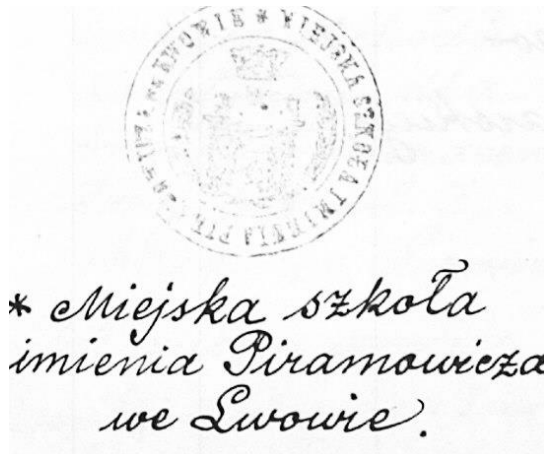 * MIEJSKA SZKOŁA IMIENIA PIRAMOWICZA WE LWOWIE
* Miejska szkoła
imienia Piramowicza
we Lwowie.